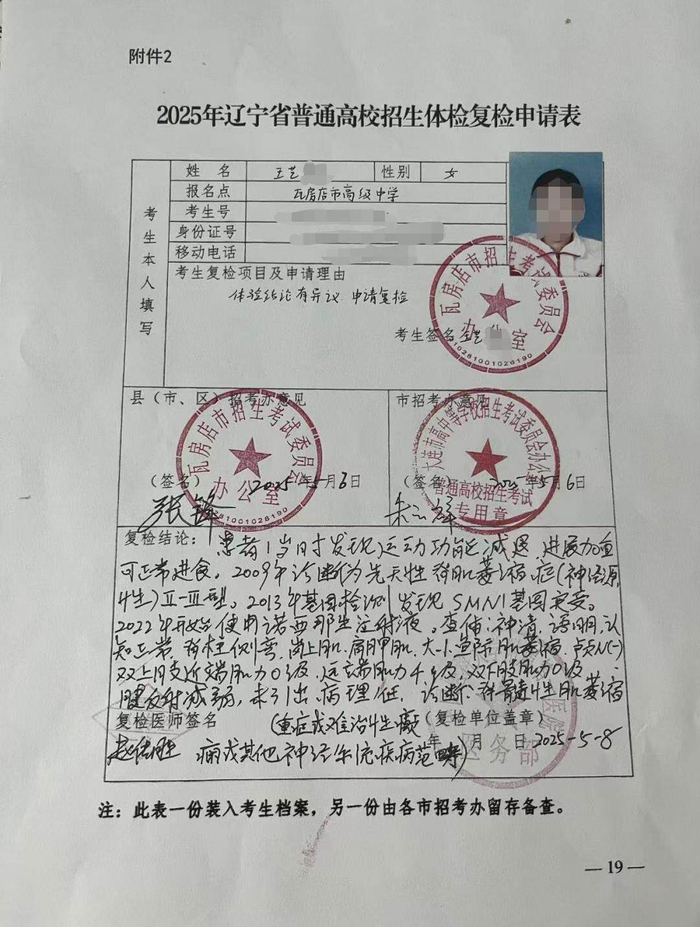 附件2
2025年辽宁省普通高校招生体检复检申请表
考生本人填写
姓 名 王艺 性别 女
报名点 瓦房店市高级中学
考生号
身份证号
移动电话
考生复检项目及申请理由
体验结论有异议 申请复检
考生签名 王艺
瓦房店市招生考试委员会
办公室
县(市、区)招考办意见
市招考办意见
瓦房店市招生考试委员会
办公室
(签名) 2025年5月6日
张锋
大连市高中等学校招生考试委员会办公
普通高校招生考试
专用章
(签名) 2025年5月6日
复检结论: 患者1岁时发现运动功能减退, 进展加重
可正常进食。2009年诊断为先天性脊肌萎缩症(神经源
性)Ⅱ-Ⅲ型。2013年基因检测发现SMN1基因突变。
2022年开始使用诺西那生注射液。查体:神清,语明,认
知正常,脊柱侧弯,岗上肌,肩胛肌,大小鱼际肌萎缩,颅N(-)
双上肢近端肌力0级,远端肌力4级,双下肢肌力0级,
腱反射减弱,未引出病理征。诊断:脊髓性肌萎缩
复检医师签名 (重症或难治性癫 (复检单位盖章)
痫或其他神经系统疾病范畴)
年 月 日 2025-5-8
医务部
注:此表一份装入考生档案,另一份由各市招考办留存备查。
— 19 —